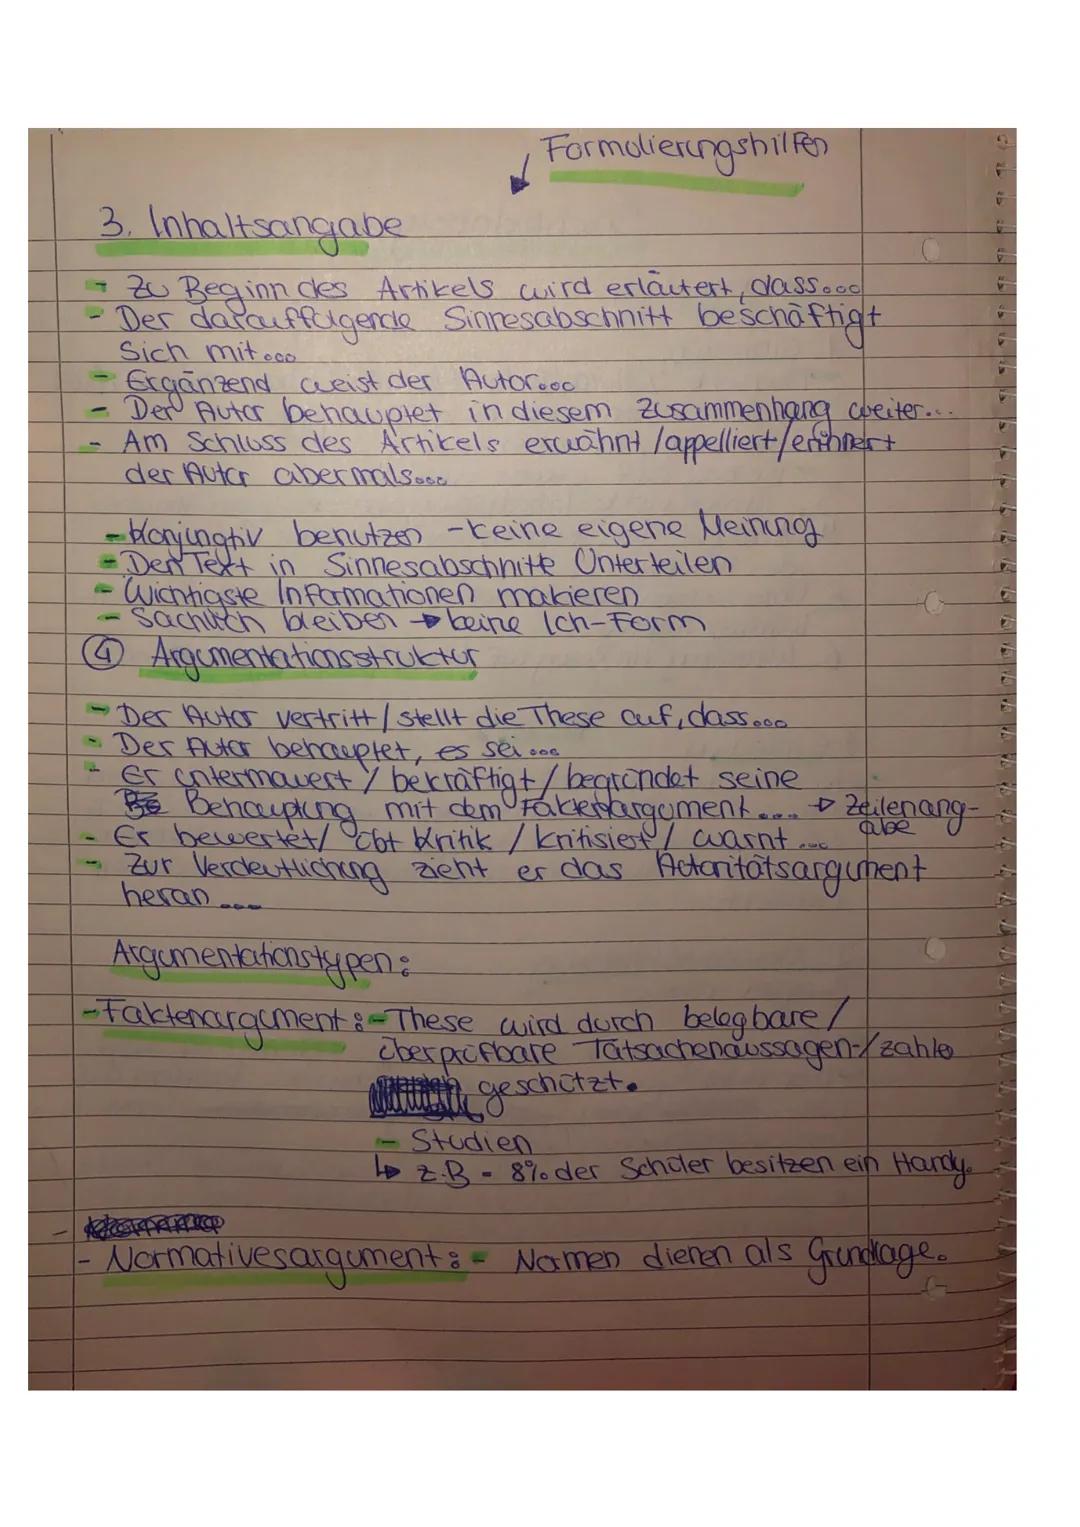 Formulierungshilfen
3. Inhaltsangabe
- Zu Beginn des Artikels wird erläutert, dass...
- Der darauffolgende Sinnesabschnitt beschäftigt
Sich mit...
- Ergänzend weist der Autor...
- Der Autor behauptet in diesem Zusammenhang weiter...
- Am Schluss des Artikels erwähnt /appelliert/erinnert
der Autor abermals...
- Konjungtiv benutzen - keine eigene Meinung
- Den Text in Sinnesabschnitte Unterteilen
- Wichtigste Informationen makieren
- Sachlich bleiben → keine Ich-Form
④ Argumentationsstruktur
- Der Autor vertritt / stellt die These auf, dass...
- Der Autor behauptet, es sei...
- Er untermauert / bekräftigt / begründet seine
Behauptung mit dem Faktenargument.... → Zeilenang-
abe
- Er bewertet/ übt Kritik / kritisiert / warnt...
- Zur Verdeutlichung zieht er das Autoritätsargument
heran...
Argumentationstypen:
- Faktenargument: - These wird durch belegbare /
überprüfbare Tatsachenaussagen-/zahle
geschützt.
- Studien
↳ z.B - 8% der Schüler besitzen ein Handy.
- Normativesargument: - Normen dienen als Grundlage.